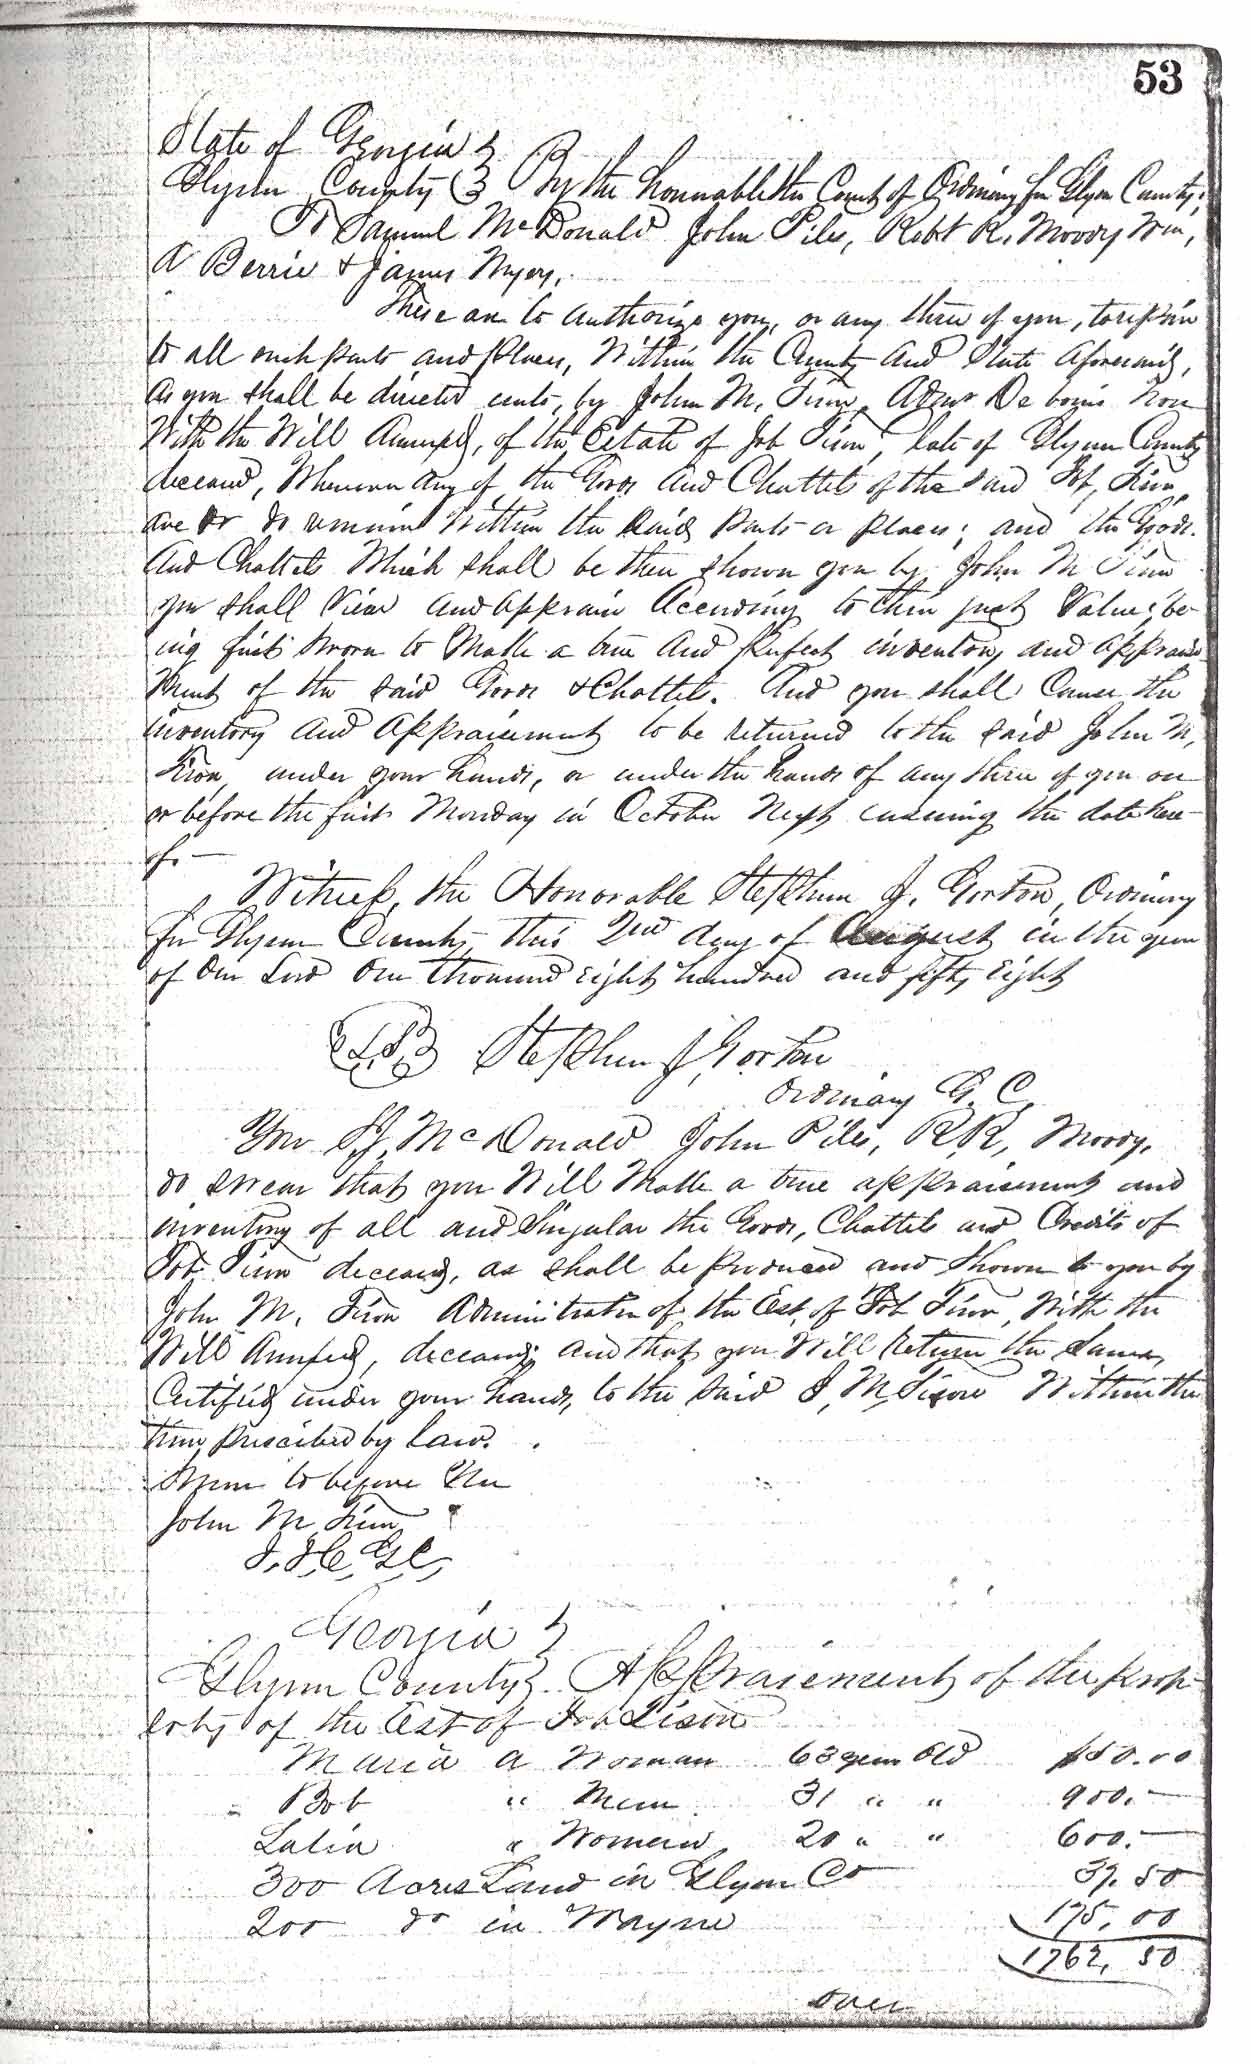 53
State of Georgia
Glynn County By the honorable the Court of Ordinary for Glynn County;
To Samuel McDonald John Piles, Robt R. Moody Wm,
A Berrie & James Myers.
These are to authorize you, or any three of you, to repair
to all such parts and places, Within the County and State aforesaid,
as you shall be directed unto, by John M. Tison, Admr De bonis non
With the Will Annexed, of the Estate of Job Tison, late of Glynn County
deceased, Wherever any of the Goods and Chattels of the said Job, Tison,
are or do remain Within the said parts or places; and the Goods
and Chattels Which shall be then shown you by John M Tison
you shall view and appraise According to their just Value; be-
ing first sworn to Make a true and perfect inventory and appraise-
ment of the said Goods & Chattels. And you shall Cause the
inventory and appraisement to be returned to the said John M,
Tison, under your hands, or under the hands of any three of you on
or before the first Monday in October Next ensuing the date here-
of. —
Witness, the Honorable Stephen J. Gorton, Ordinary
for Glynn County, this 2nd day of August in the year
of Our Lord One thousand Eight hundred and fifty Eight
L.S. Stephen J Gorton
Ordinary G. C.
You S. J. McDonald John Piles, R R, Moody,
do swear that you Will Make a true appraisement and
inventory of all and Singular the Goods, Chattels and Credits of
Job Tison deceased, as shall be produced and Shown to you by
John M. Tison Administrator of the Est, of Job Tison, With the
Will Annexed, deceased; and that you Will return the same,
Certified under your hands, to the said J, M, Tison Within the
time prescribed by law.
Sworn to before Me
John M Tison
J. I. C. G. C.
Georgia
Glynn County Appraisement of the prop-
erty of the Est of Job Tison
Maria a Woman 63 years Old $50.00
Bob " Man 31 " " 900.—
Latia " Woman 20 " " 600.—
300 Acres Land in Glynn Co 37.50
200 do in Wayne 175,00
1762,50
over